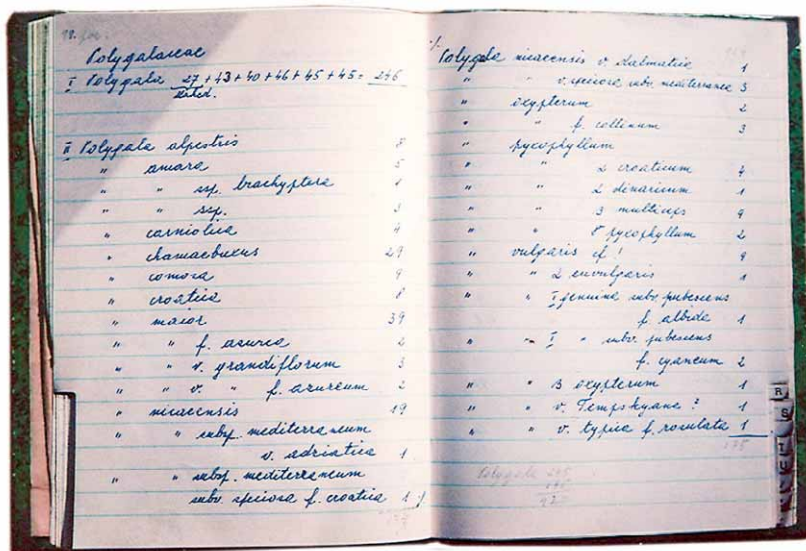 Polygalaceae
I Polygala 27+43+40+46+45+45= 246
II Polygala alpestris 8
" amara 5
" " ssp. brachyptera 1
" " ssp. 3
" carniolica 4
" chamaebuxus 29
" comosa 9
" croatica 8
" maior 39
" " f. azurea 2
" " v. grandiflorum 3
" " v. " f. azureum 2
" nicaeensis 19
" " subsp. mediterraneum
v. adriatica 1
" " subsp. mediterraneum
subv. speciosa f. croatica 1 ./.
137
./.
Polygala nicaeensis v. dalmatica 1
" " v. speciosa subv. mediterranea 3
" oxypterum 2
" " f. collinum 3
" pycophyllum
" " α croaticum 4
" " α dinaricum 1
" " β multiceps 9
" " γ pycophyllum 2
" vulgaris cf! 9
" " α euvulgaris 1
" " I genuina subv. pubescens
f. albida 1
" " I " subv. pubescens
f. cyaneum 2
" " β oxypterum 1
" " v. Tempskyana? 1
" " v. typica f. rosulata 1
175
Polygala 246
R
S
T